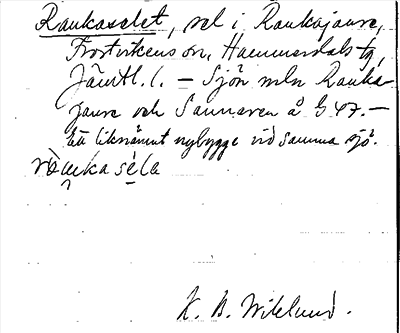 Raukaselet, sel i Raukajaure,
Frostvikens sn, Hammerdals tg,
Jämtl. l. – Sjön mln Rauka-
jaure och Sannaren å G 47. –
Ett liknämnt nybygge vid samma sjö.
ka sela
K. B. Wiklund.